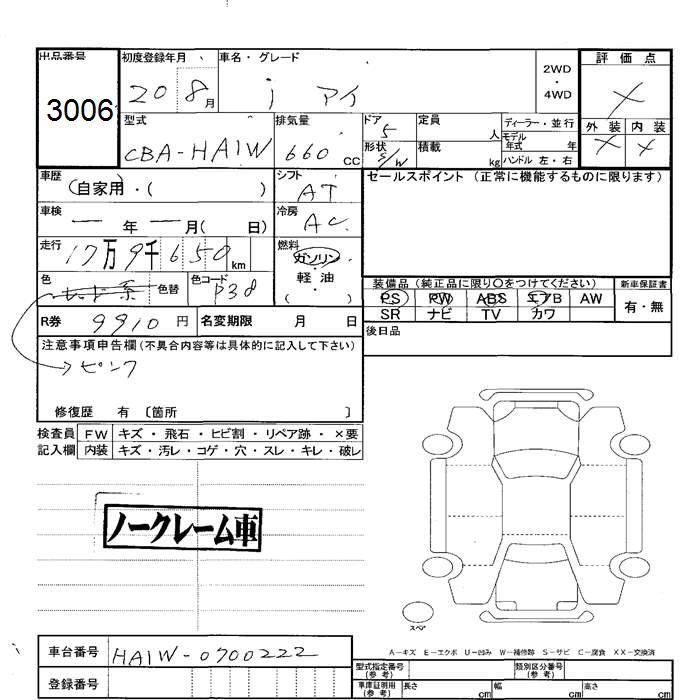 出品番号 初度登録年月 車名・グレード 評価点
3006 20 8月 i アイ 2WD・4WD ×
型式 排気量 ドア 定員 ディーラー・並行 外装 内装
CBA-HA1W 660cc 5 人 モデル年式 年 × ×
形状 S/W 積載 kg ハンドル 左・右
車歴 (自家用・( ) シフト AT セールスポイント (正常に機能するものに限ります)
車検 ー年ー月( 日) 冷房 AC
走行 17万9千650km 燃料 ガソリン・軽油・( )
色 レッド系 色替 色コード P38
装備品 (純正品に限り○をつけてください) 新車保証書
PS PW ABS エアB AW 有・無
SR ナビ TV カワ
R券 9910円 名変期限 月 日 後日品
注意事項申告欄(不具合内容等は具体的に記入して下さい)
→ピンク
修復歴 有 〔箇所 〕
検査員 FW キズ・飛石・ヒビ割・リペア跡・×要
記入欄 内装 キズ・汚レ・コゲ・穴・スレ・キレ・破レ
ノークレーム車
スペア
A-キズ E-エクボ U-凹み W-補修跡 S-サビ C-腐食 XX-交換済
車台番号 HA1W-0700222
登録番号
型式指定番号(参考) 類別区分番号(参考)
車庫証明用(参考) 長さ cm 幅 cm 高さ cm